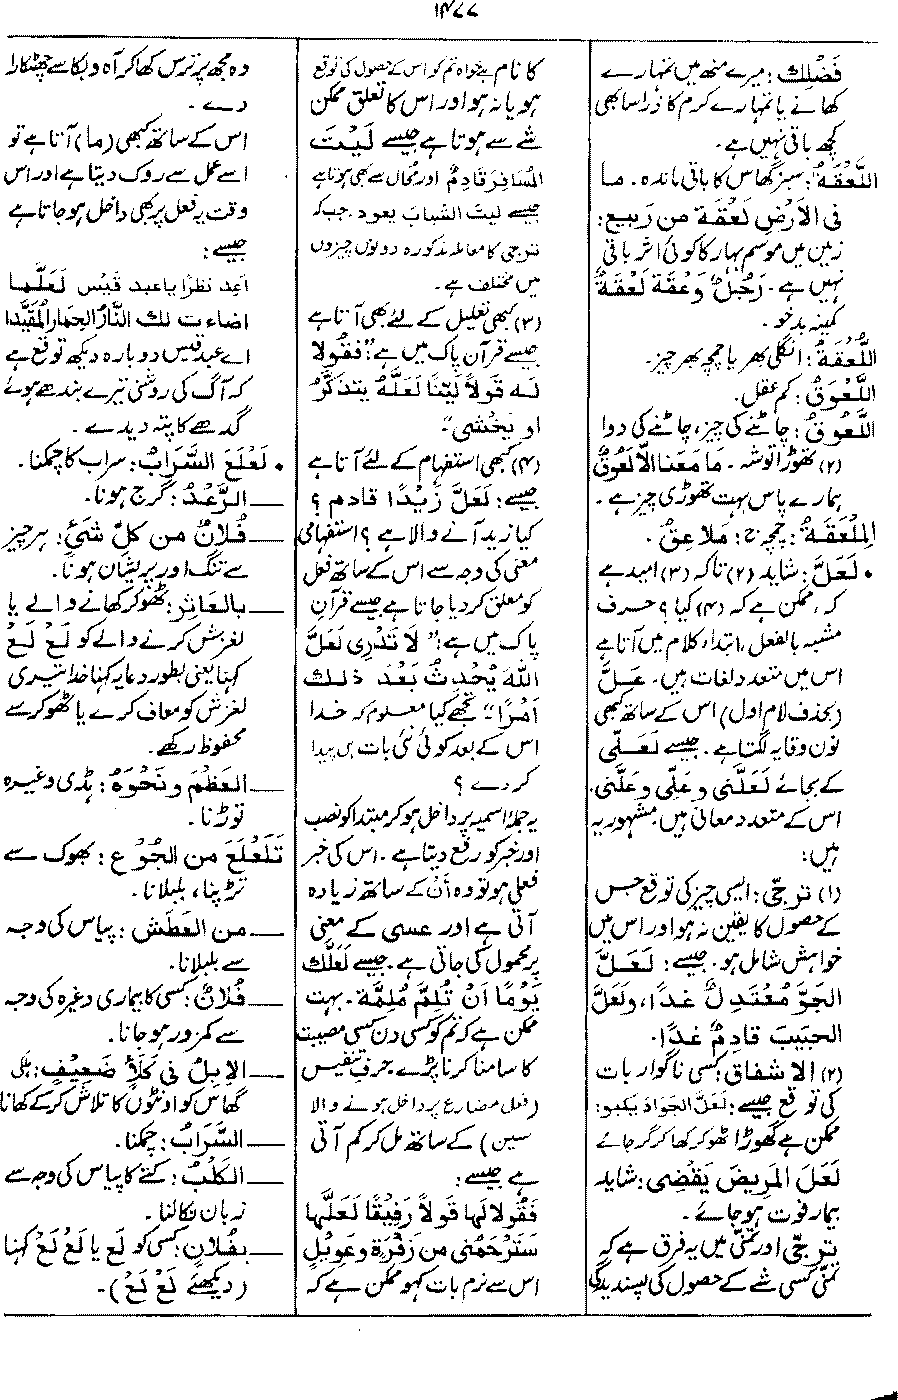 ۱۴۷۷
فَضْلِكَ: میرے منھ میں تمہارے
کھانے یا تمہارے کرم کا ذرا سا بھی
کچھ باقی نہیں ہے۔
اللَّعْقَةُ: سبز گھاس کا باقی ماندہ۔ ما
فی الاَرْضِ لَعْقَة من رَبِيع:
زمین میں موسم بہار کا کوئی اثر باقی
نہیں ہے۔ رَجُلٌ وَعْقَة لَعْقَةٌ
کمینہ بدخو۔
اللُّعْقَةُ: انگلی بھر یا چمچہ بھر چیز۔
اللَّعْوَقُ: کم عقل۔
اللَّعُوقُ: چاٹنے کی چیز، چاٹنے کی دوا
(۲) تھوڑا توشہ۔ مَا مَعَنَا الاّ لَعُوقٌ
ہمارے پاس بہت تھوڑی چیز ہے۔
المِلْعَقَةُ: چمچہ ج: مَلاعِقُ۔
• لَعَلَّ: شاید (۲) تاکہ (۳) امید ہے
کہ، ممکن ہے کہ (۴) کیا؟ حرف
مشبہ بالفعل، ابتداء کلام میں آتا ہے
اس میں متعدد لغات ہیں۔ عَلَّ
(بحذف لام اول) اس کے ساتھ کبھی
نون وقایہ لگتا ہے۔ جیسے لَعَلِّی
کے بجائے لَعَلَّنی وعَلِّی وعَلَّنی۔
اس کے متعدد معانی ہیں۔ مشہور یہ
ہیں:
(۱) ترجّی: ایسی چیز کی توقع جس
کے حصول کا یقین نہ ہو اور اس میں
خواہش شامل ہو۔ جیسے: لَعَلَّ
الجَوَّ مُعْتَدِلٌ غدًا، ولَعَلَّ
الحبیبَ قادِمٌ غدًا۔
(۲) الاشفاق: کسی ناگوار بات
کی توقع جیسے: لَعَلَّ الجوادَ یکبو:
ممکن ہے گھوڑا ٹھوکر کھا کر گر جائے
لَعَلَّ المَرِيضَ يَقْضِی: شاید
بیمار فوت ہوجائے۔
ترجّی اور تمنّی میں یہ فرق ہے کہ
تمنّی کسی شے کے حصول کی پسندیدگی
کا نام ہے خواہ تم کو اس کے حصول کی توقع
ہو یا نہ ہو اور اس کا تعلق ممکن
شے سے ہوتا ہے جیسے لَیْتَ
المُسافِرَ قَادِمٌ اور محال سے بھی ہوتا ہے
جیسے لیتَ الشّبابَ یعود۔ جب کہ
ترجی کا معاملہ مذکورہ دونوں چیزوں
میں مختلف ہے۔
(۳) کبھی تعلیل کے لئے بھی آتا ہے
جیسے قرآن پاک میں ہے "فَقُولا
لَہ قَولاً لَیّنًا لَعَلَّهُ یتذَکَّرُ
او یَخْشٰی"۔
(۴) کبھی استفہام کے لئے آتا ہے
جیسے: لَعَلَّ زَیْدًا قادم؟
کیا زید آنے والا ہے؟ استفہامی
معنی کی وجہ سے اس کے ساتھ فعل
کو معلق کردیا جاتا ہے جیسے قرآن
پاک میں ہے: "لَا تَدْرِی لَعَلَّ
اللّٰہَ یُحْدِثُ بَعْدَ ذٰلِكَ
اَمْرًا" تجھے کیا معلوم کہ خدا
اس کے بعد کوئی نئی بات ہی پیدا
کردے؟
یہ جملہ اسمیہ پر داخل ہو کر مبتدا کو نصب
اور خبر کو رفع دیتا ہے۔ اس کی خبر
فعلی ہو تو وہ أنْ کے ساتھ زیادہ
آتی ہے اور عسٰی کے معنی
پر محمول کی جاتی ہے۔ جیسے لَعَلَّكَ
یَوْمًا اَنْ تُلِمَّ مُلِمَّة۔ بہت
ممکن ہے کہ تم کو کسی دن کسی مصیبت
کا سامنا کرنا پڑے۔ حرف تنفیس
(فعل مضارع پر داخل ہونے والا
سین) کے ساتھ مل کر کم آتی
ہے جیسے:
فَقُولا لَهَا قَولاً رَفِیْقًا لَعَلَّها
سَتَرْحَمُنی مِن زَفْرَةٍ وعَوِیْل
اس سے نرم بات کہو ممکن ہے کہ
وہ مجھ پر ترس کھا کر آہ و بکا سے چھٹکارا
دے۔
اس کے ساتھ کبھی (ما) آتا ہے تو
اسے عمل سے روک دیتا ہے اور اس
وقت یہ فعل پر بھی داخل ہوجاتا ہے
جیسے:
اَعِد نظرًا یا عبد قَیْس لَعَلَّما
اضاءت لك النَّارُ الحِمارَ المُقَیَّدا
اے عبد قیس دوبارہ دیکھ توقع ہے
کہ آگ کی روشنی تیرے بندھے ہوئے
گدھے کا پتہ دیدے۔
• لَعْلَعَ السَّرَابُ: سراب کا چمکنا۔
— الرَّعْدُ: گرج ہونا۔
— فُلانٌ من کلِّ شئٍ: ہر چیز
سے تنگ اور پریشان ہونا۔
— بالعَاثِرِ: ٹھوکر کھانے والے یا
لغزش کرنے والے کو لَعْ لَعْ
کہنا یعنی بطور دعا یہ کہنا خدا تیری
لغزش کو معاف کرے یا ٹھوکر سے
محفوظ رکھے۔
— العَظْمَ ونَحْوَهُ: ہڈی وغیرہ
توڑنا۔
تَلَعْلَعَ من الجُوْع: بھوک سے
تڑپنا، بلبلانا۔
— من العَطَشِ: پیاس کی وجہ
سے بلبلانا۔
— فُلانٌ: کسی کا بیماری وغیرہ کی وجہ
سے کمزور ہوجانا۔
— الابِلُ فی کَلَأٍ ضَعِیْفٍ: ہلکی
گھاس کو اونٹوں کا تلاش کرکے کھانا
— السَّرَابُ: چمکنا۔
— الکَلْبُ: کتے کا پیاس کی وجہ سے
زبان نکالنا۔
— بفُلانٍ: کسی کو لَعْ یا لَعْ لَعْ کہنا
(دیکھئے لَعْ لَعْ)۔